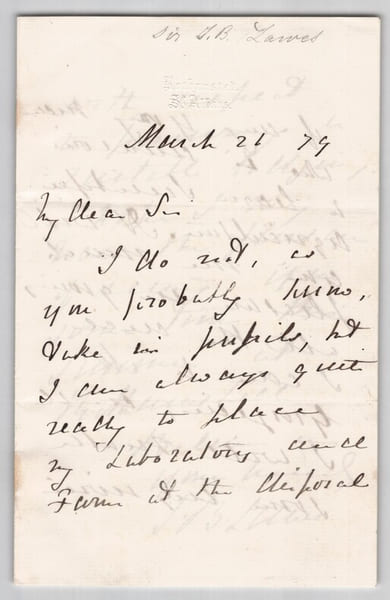 Sir J. B. Lawes
Rothamsted
St. Albans
March 21 79
My dear Sir
I do not, as
you probably know,
take in pupils, but
I am always quite
ready to place
my Laboratory and
Farm at the disposal